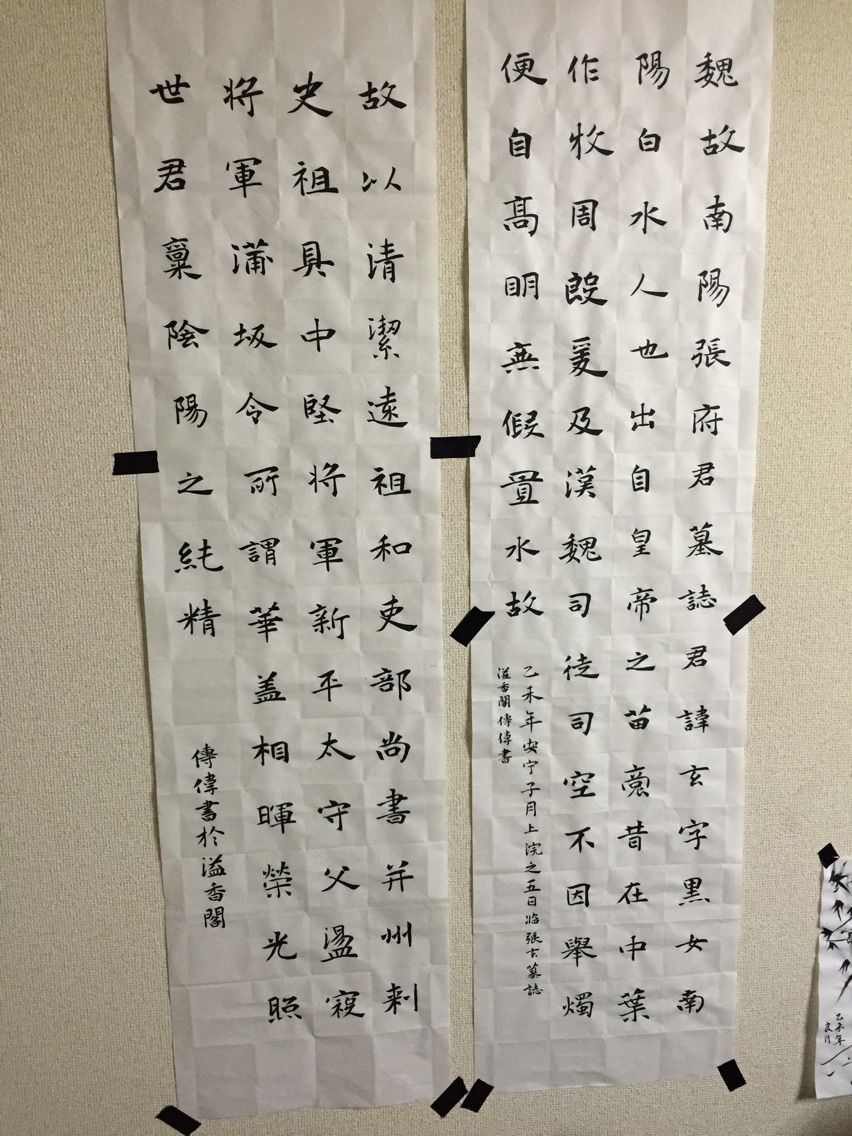 魏故南陽張府君墓誌君諱玄字黑女南
陽白水人也出自皇帝之苗裔昔在中葉
作牧周殷爰及漢魏司徒司空不因舉燭
便自高明無假置水故
乙未年安宁子月上浣之五日临張玄墓誌
溢香閣傳偉書
故以清潔遠祖和吏部尚書并州刺
史祖具中堅將軍新平太守父盪寇
將軍蒲坂令所謂華盖相暉榮光照
世君稟陰陽之純精
傳偉書於溢香閣
乙未年